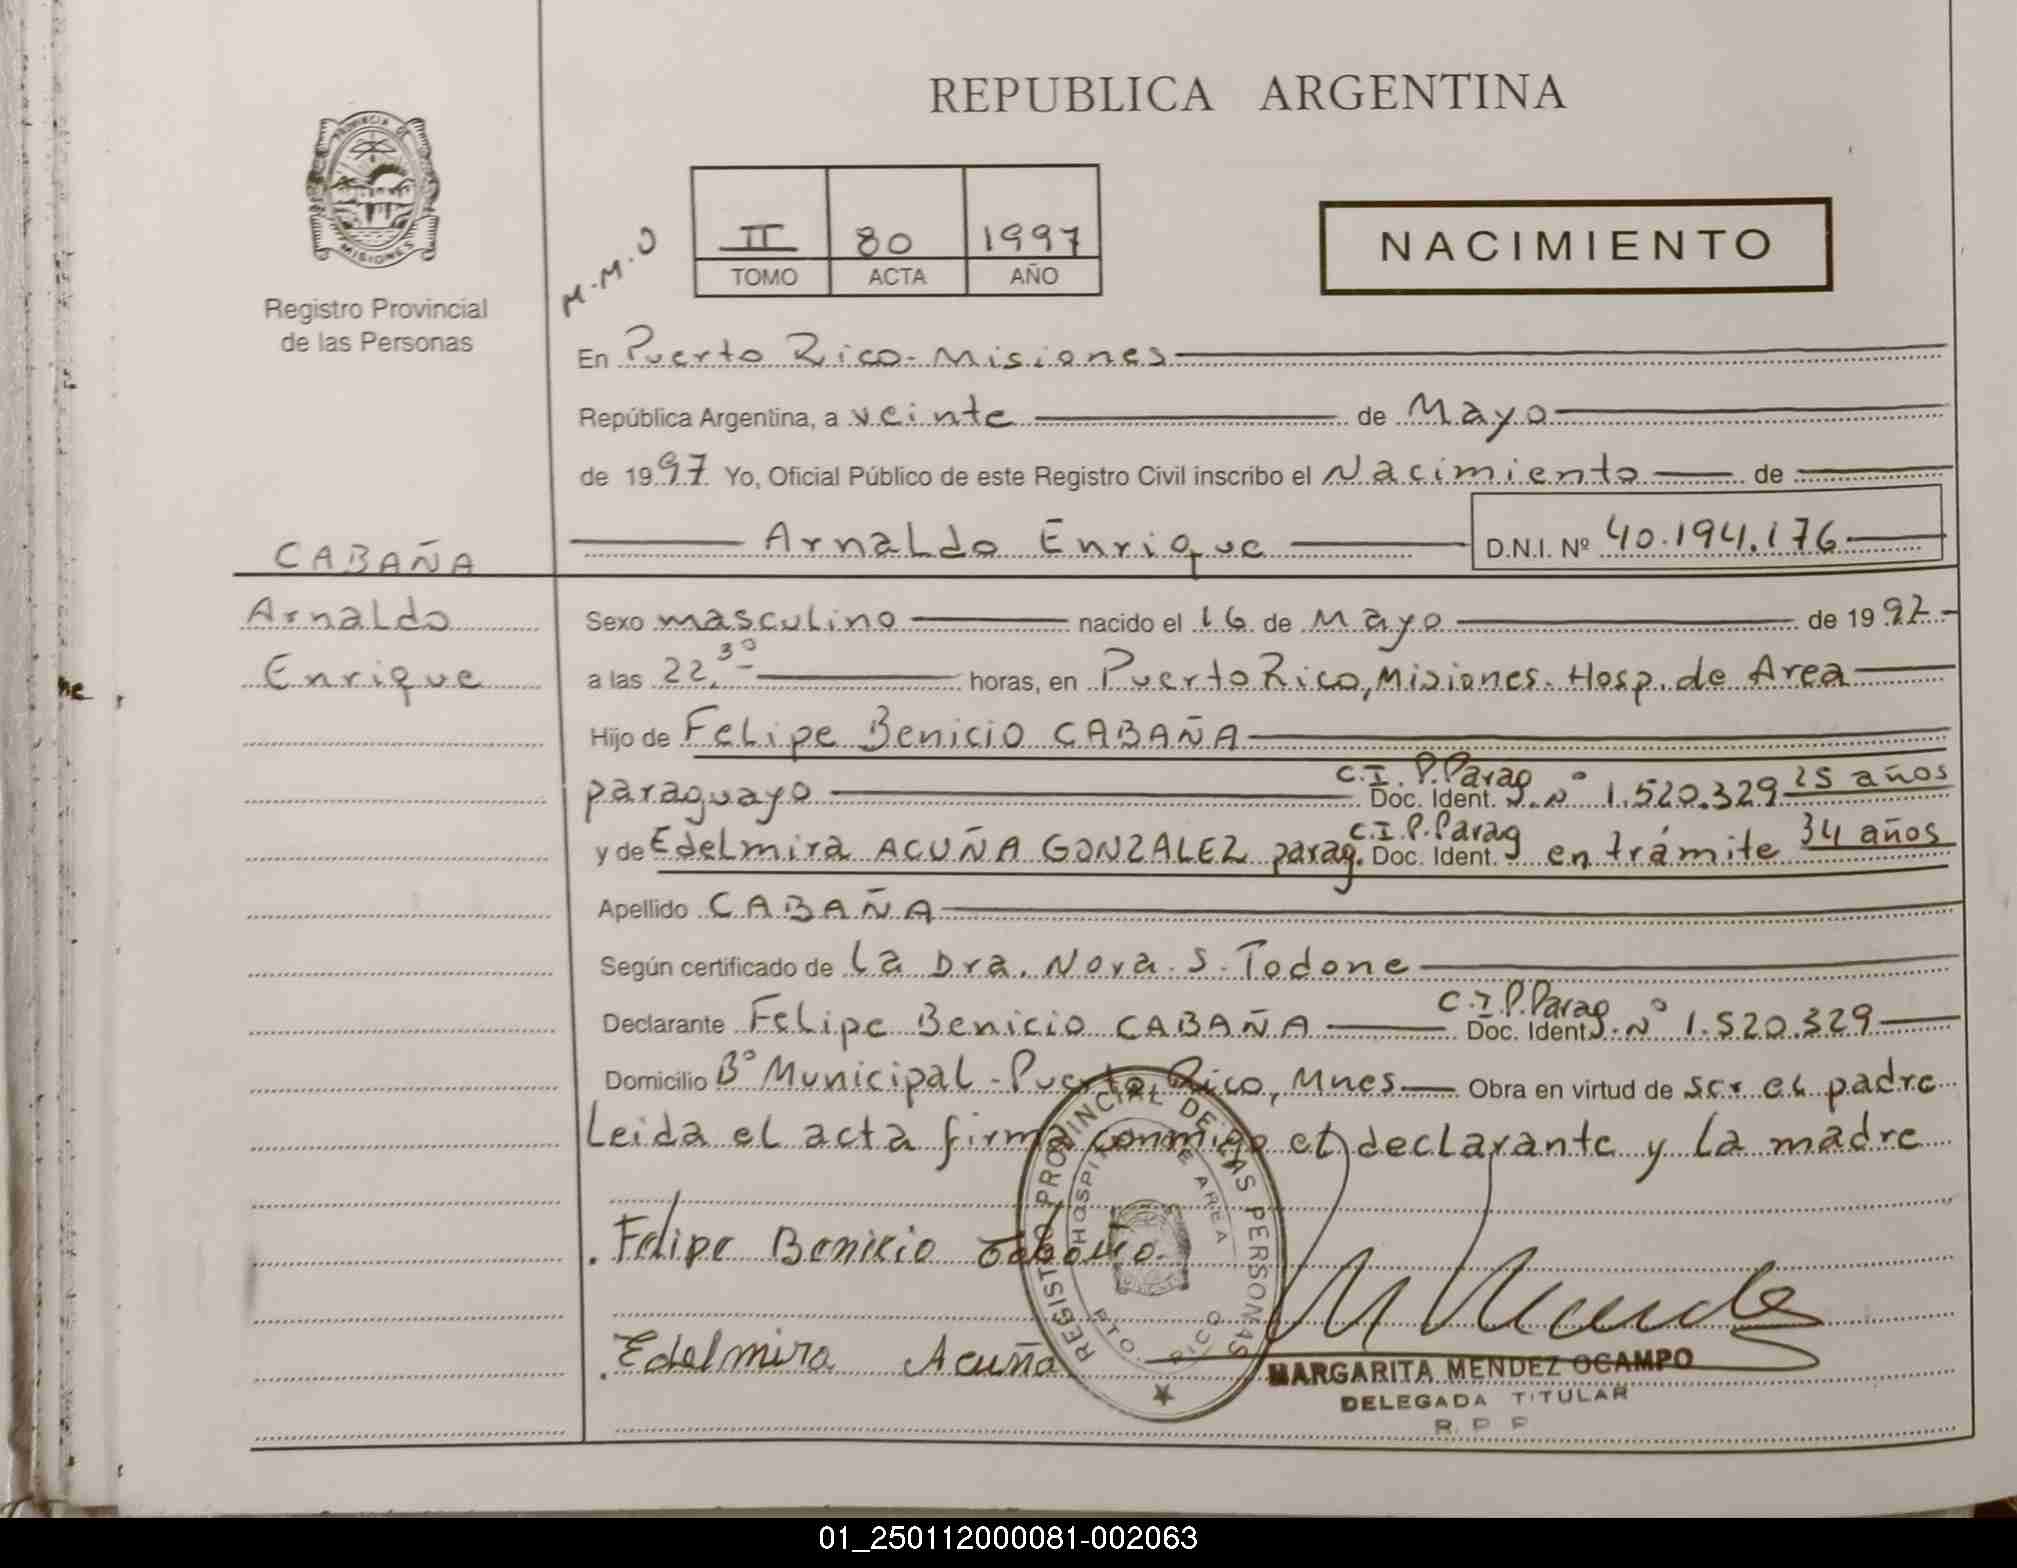 REPUBLICA ARGENTINA
PROVINCIA DE MISIONES
Registro Provincial
de las Personas
M.M.O
II 80 1997
TOMO ACTA AÑO
NACIMIENTO
En Puerto Rico - Misiones
República Argentina, a veinte de Mayo
de 1997 Yo, Oficial Público de este Registro Civil inscribo el Nacimiento de
Arnaldo Enrique D.N.I. Nº 40.194.176
CABAÑA
Arnaldo
Enrique
Sexo masculino nacido el 16 de Mayo de 1997
a las 22.30 horas, en Puerto Rico, Misiones. Hosp. de Area
Hijo de Felipe Benicio CABAÑA
paraguayo C.I.P. Parag Doc. Ident. Nº 1.520.329 25 años
y de Edelmira ACUÑA GONZALEZ parag. C.I.P. Parag Doc. Ident. en trámite 34 años
Apellido CABAÑA
Según certificado de la Dra. Nora S. Todone
Declarante Felipe Benicio CABAÑA C.I.P. Parag Doc. Ident. Nº 1.520.329
Domicilio Bº Municipal - Puerto Rico, Mnes Obra en virtud de ser el padre
Leida el acta firma conmigo el declarante y la madre
Felipe Benicio Cabaña
Edelmira Acuña
REGISTRO PROVINCIAL DE LAS PERSONAS
HOSPITAL DE AREA
PTO. RICO
MARGARITA MENDEZ OCAMPO
DELEGADA TITULAR
R.P.P
01_250112000081-002063